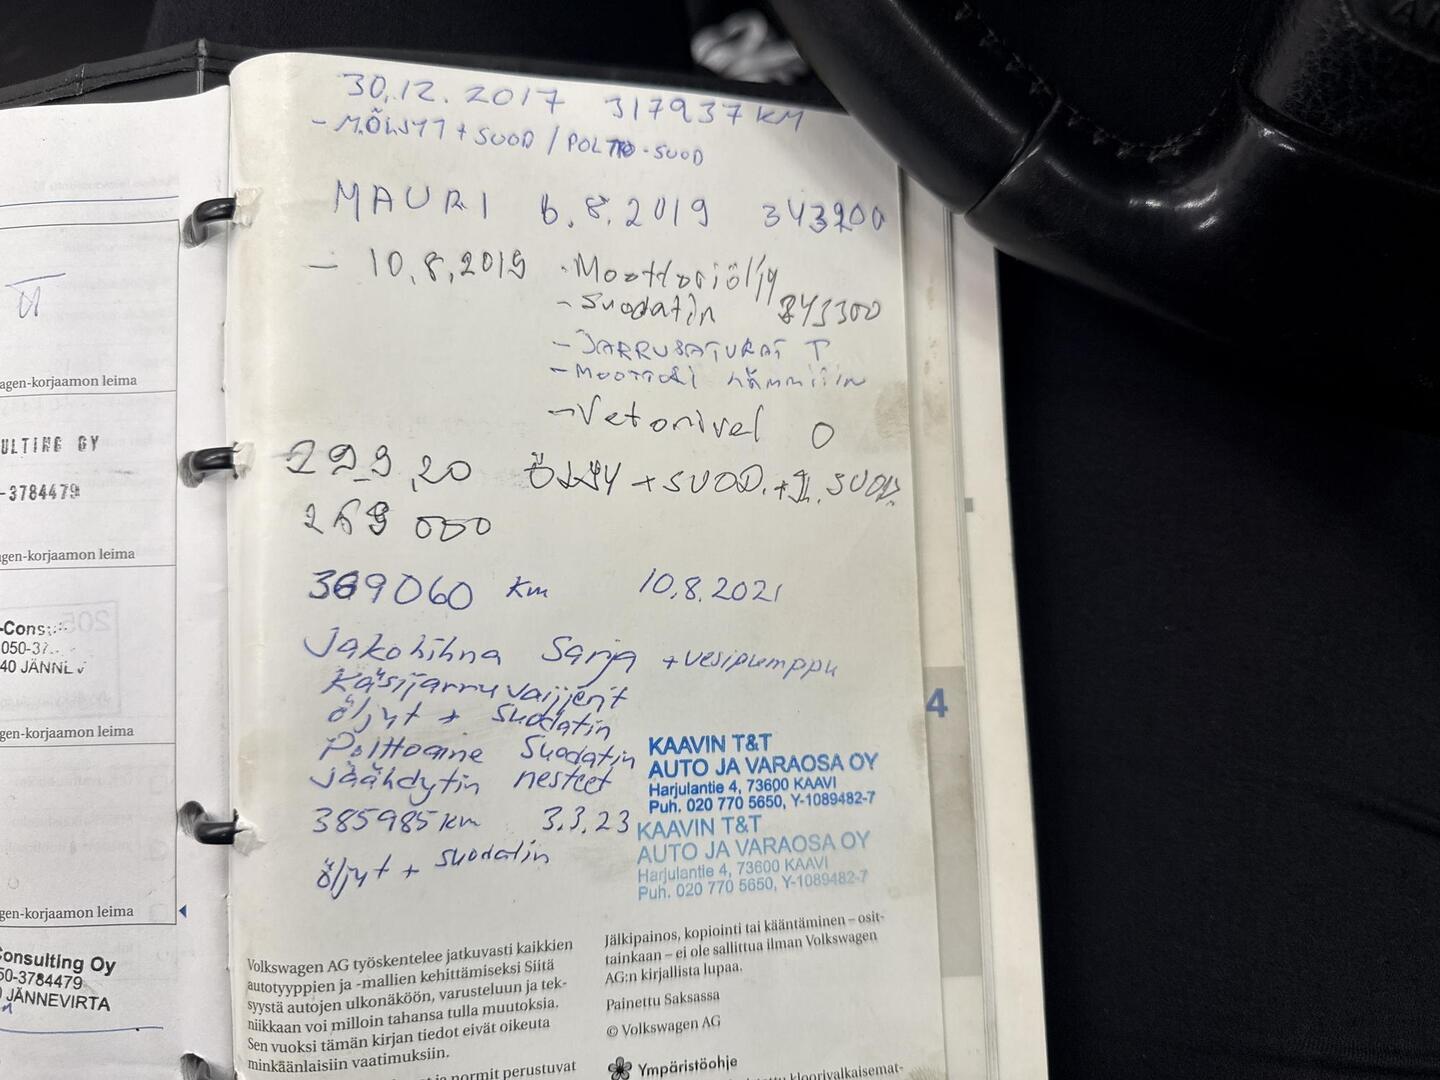 agen-korjaamon leima
ULTING OY
-3784479
gen-korjaamon leima
-Cons
050-37
40 JÄNNE
gen-korjaamon leima
gen-korjaamon leima
onsulting Oy
50-3784479
JÄNNEVIRTA
30.12.2017 317937 KM
- M.ÖLJYT + SUOD / POLTTO-SUOD
MAURI 6.8.2019 343200
- 10.8.2019 - Moottoriöljy
- Suodatin 343300
- JARRUSATURAT T
- MOOTTORI LÄMMITIN
- Vetonivel O
29.9.20 ÖLJY + SUOD. + I. SUOD.
000
369060 km 10.8.2021
Jakohihna Sarja + vesipumppu
Käsijarru vaijerit
öljyt + suodatin
Polttoaine Suodatin
Jäähdytin nesteet
385985 km 3.3.23
öljyt + suodatin
KAAVIN T&T
AUTO JA VARAOSA OY
Harjulantie 4, 73600 KAAVI
Puh. 020 770 5650, Y-1089482-7
KAAVIN T&T
AUTO JA VARAOSA OY
Harjulantie 4, 73600 KAAVI
Puh. 020 770 5650, Y-1089482-7
4
Volkswagen AG työskentelee jatkuvasti kaikkien
autotyyppien ja -mallien kehittämiseksi Siitä
syystä autojen ulkonäköön, varusteluun ja tek-
niikkaan voi milloin tahansa tulla muutoksia.
Sen vuoksi tämän kirjan tiedot eivät oikeuta
minkäänlaisiin vaatimuksiin.
ja normit perustuvat
Jälkipainos, kopiointi tai kääntäminen – osit-
tainkaan – ei ole sallittua ilman Volkswagen
AG:n kirjallista lupaa.
Painettu Saksassa
© Volkswagen AG
Ympäristöohje
kloorivalkaisemat-